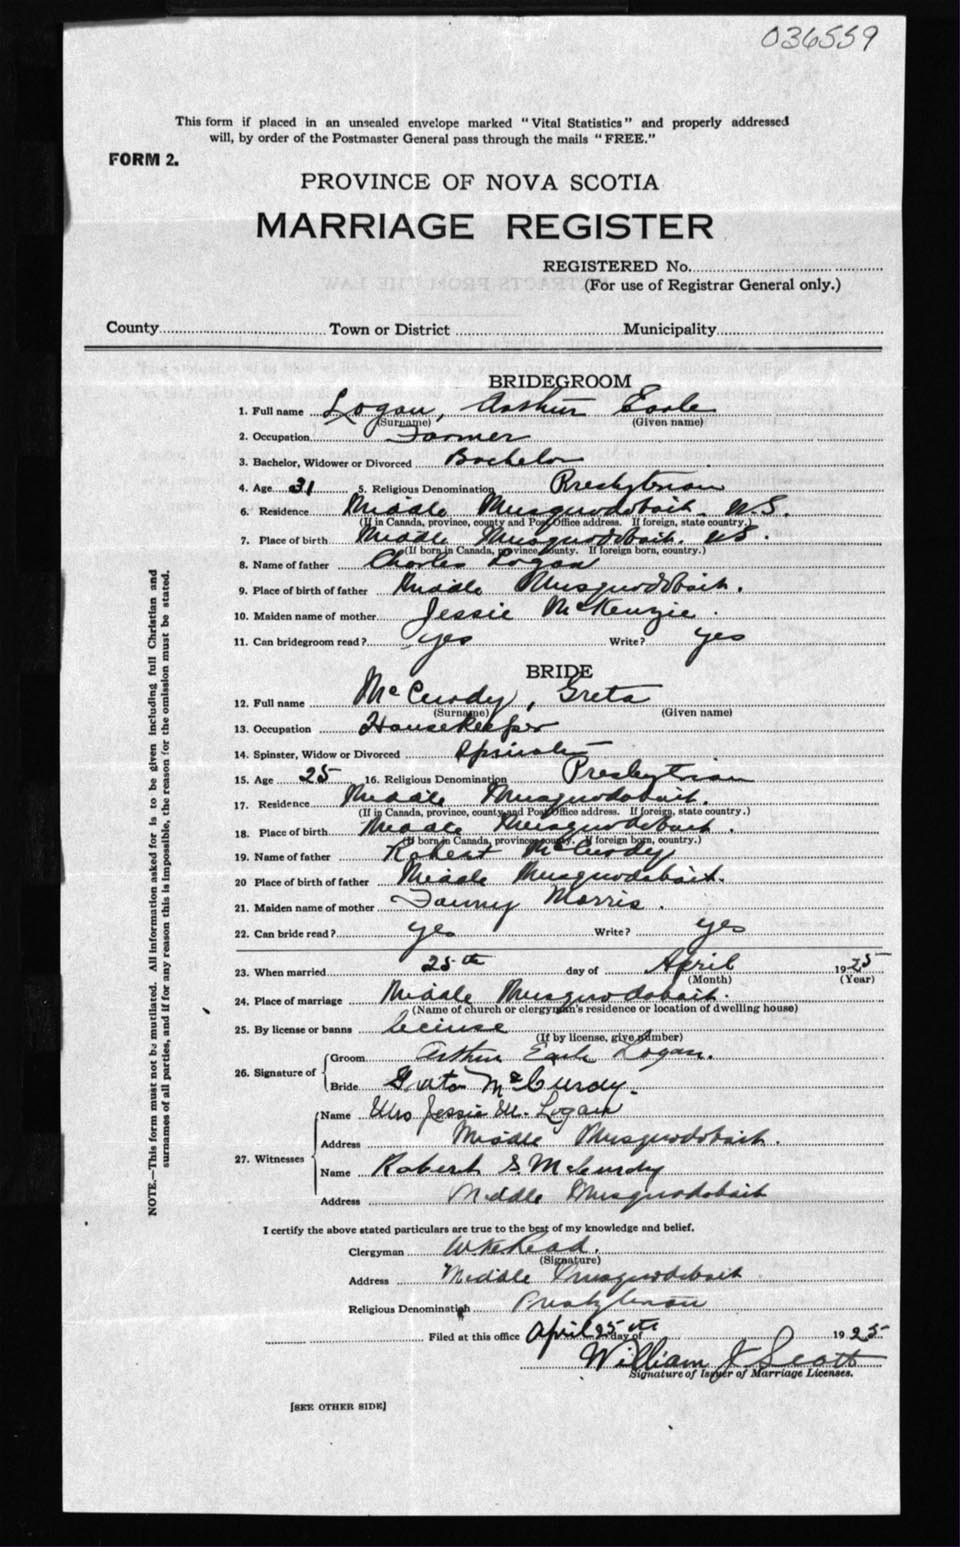 036559
This form if placed in an unsealed envelope marked "Vital Statistics" and properly addressed
will, by order of the Postmaster General pass through the mails "FREE."
FORM 2.
PROVINCE OF NOVA SCOTIA
MARRIAGE REGISTER
REGISTERED No.
(For use of Registrar General only.)
County Town or District Municipality
BRIDEGROOM
1. Full name Logan, Arthur Earle
(Surname) (Given name)
2. Occupation Farmer
3. Bachelor, Widower or Divorced Bachelor
4. Age 31 5. Religious Denomination Presbyterian
6. Residence Middle Musquodoboit. N.S.
(If in Canada, province, county and Post Office address. If foreign, state country.)
7. Place of birth Middle Musquodoboit. N.S.
(If born in Canada, province, county. If foreign born, country.)
8. Name of father Charles Logan
9. Place of birth of father Middle Musquodoboit.
10. Maiden name of mother Jessie McKenzie.
11. Can bridegroom read? yes Write? yes
BRIDE
12. Full name McCurdy, Greta
(Surname) (Given name)
13. Occupation Housekeeper
14. Spinster, Widow or Divorced Spinster
15. Age 25 16. Religious Denomination Presbytrian
17. Residence Middle Musquodoboit.
(If in Canada, province, county and Post Office address. If foreign, state country.)
18. Place of birth Middle Musquodoboit.
(If born in Canada, province, county. If foreign born, country.)
19. Name of father Robert McCurdy
20 Place of birth of father Middle Musquodoboit.
21. Maiden name of mother Fanny Morris.
22. Can bride read? yes Write? yes
23. When married 25th day of April 1925
(Month) (Year)
24. Place of marriage Middle Musquodoboit.
(Name of church or clergyman's residence or location of dwelling house)
25. By license or banns license
(If by license, give number)
26. Signature of Groom Arthur Earle Logan.
Bride Greta McCurdy.
27. Witnesses Name Mrs Jessie M. Logan
Address Middle Musquodoboit.
Name Robert G McCurdy
Address Middle Musquodoboit
I certify the above stated particulars are true to the best of my knowledge and belief.
Clergyman Read.
(Signature)
Address Middle Musquodoboit
Religious Denomination Presbyterian
Filed at this office April 25th day of 1925
William J Scott
Signature of Issuer of Marriage Licenses.
[SEE OTHER SIDE]
NOTE.—This form must not be mutilated. All information asked for is to be given including full Christian and
surnames of all parties, and if for any reason this is impossible, the reason for the omission must be stated.